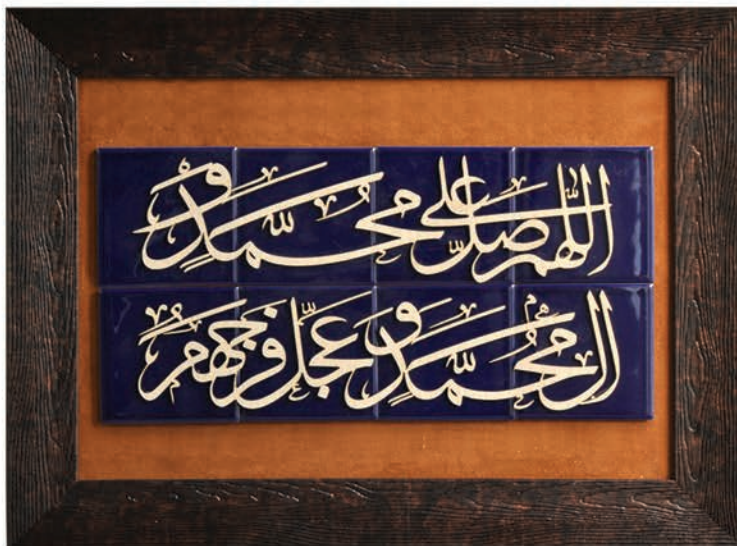 اللّهم صلّ علی محمّد و
ال محمّد و عجّل فرجهم